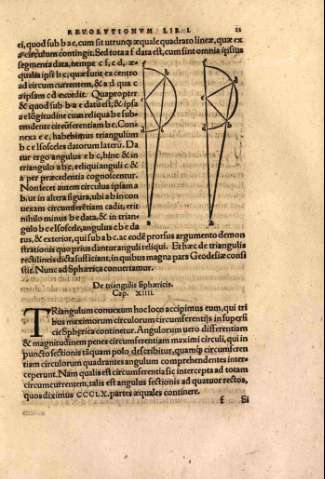 REVOLVTIONVM LIB. I.
ei, quod sub b a e, cum sit utrunq; æquale quadrato lineæ, quæ ex
a circulum contingit. Sed tota a f data est, cum sint omnia ipsius
segmenta data, nempe c f, c d, æ-
qualia ipsi b c, quæ sunt ex centro
ad circumcurrentem, & a d qua c
a ipsam c d excedit. Quapropter
& quod sub b a e datū est, & ipsa
a e lōgitudine cum reliqua b e sub-
tendente circūferentiam b e. Con-
nexa e c, habebimus triangulum
b c e Isosceles datorum laterū. Da
tur ergo angulus e b c, hinc & in
triangulo a b c, reliqui anguli c &
a per præcedentia cognoscentur.
Non secet autem circulus ipsam a
b, ut in altera figura, ubi a b in con
uexam circumferētiam cadit, erit
nihilo minus b e data, & in trian-
gulo b c e Isoscele, angulus c b e da-
tus, & exterior, qui sub a b c, ac eodē prorsus argumento demon
strationis quo prius dantur anguli reliqui. Et hæc de triangulis
rectilineis dicta sufficiant, in quibus magna pars Geodesiæ consi
stit. Nunc ad Sphærica conuertamur.
De triangulis Sphæricis.
Cap. XIIII.
TRiangulum conuexum hoc loco accipimus eum, qui tri
bus maximorum circulorum circumferentijs in superfi
cie Sphærica continetur. Angulorum uero differentiam
& magnitudinem penes circumferentiam maximi circuli, qui in
puncto sectionis tāquam polo, describitur, quamq; circumferen
tiam circulorum quadrantes angulum comprehendentes inter-
ceperunt. Nam qualis est circumferentia sic intercepta ad totam
circumcurrentem, talis est angulus sectionis ad quatuor rectos,
quos diximus CCCLX. partes æquales continere.
f Si